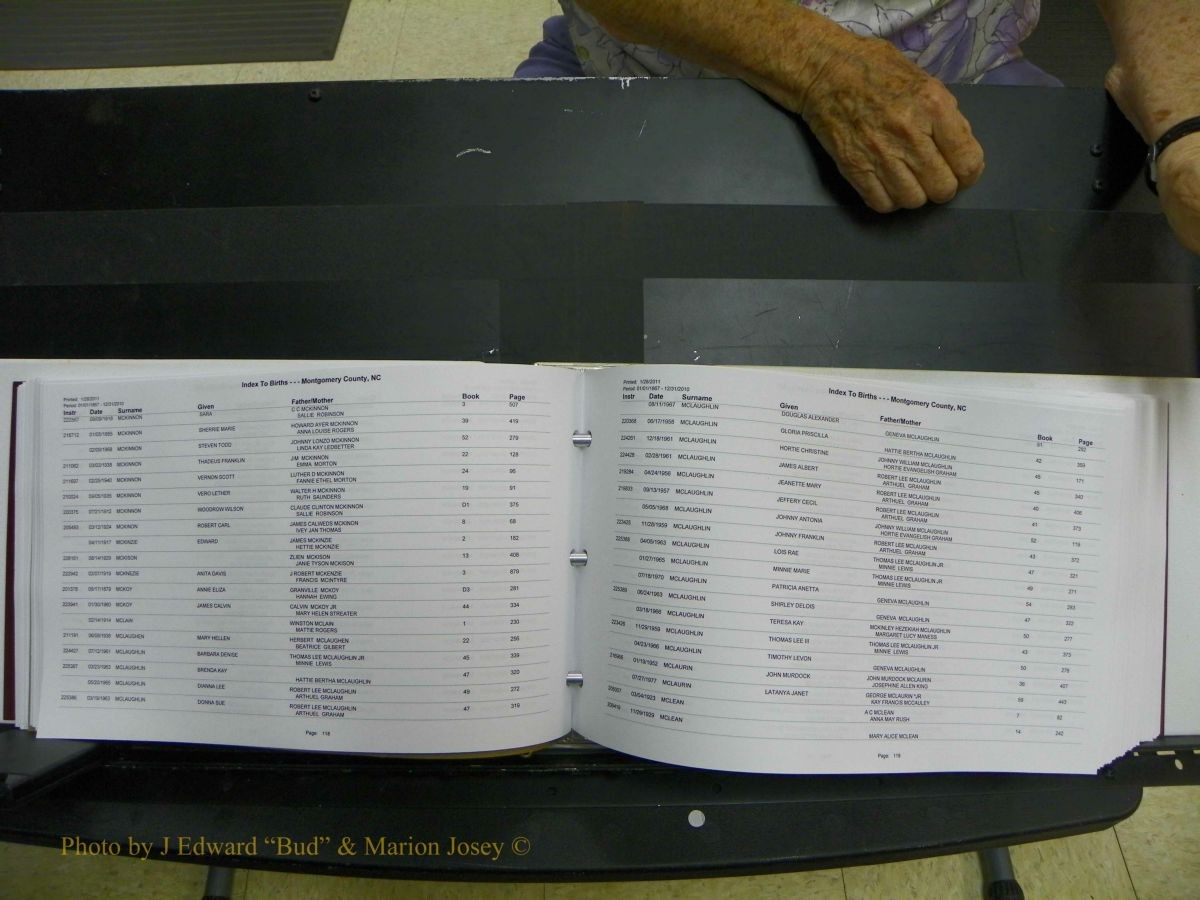 Index To Births - - - Montgomery County, NC
Printed: 1/28/2011
Period: 01/01/1867 - 12/31/2010
Instr Date Surname Given Father/Mother Book Page
MCKINNON SARA C C MCKINNON 3 507
SALLIE ROBINSON
MCKINNON SHERRIE MARIE HOWARD AYER MCKINNON 39 419
ANNA LOUISE ROGERS
MCKINNON STEVEN TODD JOHNNY LONZO MCKINNON 52 279
LINDA KAY LEDBETTER
MCKINNON THADEUS FRANKLIN JIM MCKINNON 22 128
EMMA MORTON
MCKINNON VERNON SCOTT LUTHER D MCKINNON 24 95
FANNIE ETHEL MORTON
MCKINNON VERO LETHER WALTER H MCKINNON 19 91
RUTH SAUNDERS
MCKINNON WOODROW WILSON CLAUDE CLINTON MCKINNON D1 375
SALLIE ROBINSON
MCKINON ROBERT CARL JAMES CALWEDS MCKINON 8 68
IVEY JAN THOMAS
MCKINZIE EDWARD JAMES MCKINZIE 2 182
HETTIE MCKINZIE
MCKISON ZLIEN MCKISON 13 408
JANIE TYSON MCKISON
MCKNEZIE ANITA DAVIS J ROBERT MCKENZIE 3 879
FRANCIS MCINTYRE
MCKOY ANNIE ELIZA GRANVILLE MCKOY D3 281
HANNAH EWING
MCKOY JAMES CALVIN CALVIN MCKOY JR 44 334
MARY HELEN STREATER
MCLAIN WINSTON MCLAIN 1 230
MATTIE ROGERS
MCLAUGHEN MARY HELLEN HERBERT MCLAUGHEN 22 256
BEATRICE GILBERT
MCLAUGHLIN BARBARA DENISE THOMAS LEE MCLAUGHLIN JR 45 339
MINNIE LEWIS
MCLAUGHLIN BRENDA KAY 47 320
HATTIE BERTHA MCLAUGHLIN
MCLAUGHLIN DIANNA LEE ROBERT LEE MCLAUGHLIN 49 272
ARTHUEL GRAHAM
MCLAUGHLIN DONNA SUE ROBERT LEE MCLAUGHLIN 47 319
ARTHUEL GRAHAM
Page: 118
Index To Births - - - Montgomery County, NC
Printed: 1/28/2011
Period: 01/01/1867 - 12/31/2010
Instr Date Surname Given Father/Mother Book Page
08/11/1967 MCLAUGHLIN DOUGLAS ALEXANDER 282
GENEVA MCLAUGHLIN
06/17/1958 MCLAUGHLIN GLORIA PRISCILLA 42 359
HATTIE BERTHA MCLAUGHLIN
12/18/1961 MCLAUGHLIN HORTIE CHRISTINE JOHNNY WILLIAM MCLAUGHLIN 45 171
HORTIE EVANGELISH GRAHAM
02/28/1961 MCLAUGHLIN JAMES ALBERT ROBERT LEE MCLAUGHLIN 45 340
ARTHUEL GRAHAM
04/24/1956 MCLAUGHLIN JEANETTE MARY ROBERT LEE MCLAUGHLIN 40 406
ARTHUEL GRAHAM
09/13/1957 MCLAUGHLIN JEFFERY CECIL ROBERT LEE MCLAUGHLIN 41 375
ARTHUEL GRAHAM
05/05/1968 MCLAUGHLIN JOHNNY ANTONIA JOHNNY WILLIAM MCLAUGHLIN 52 119
HORTIE EVANGELISH GRAHAM
11/28/1959 MCLAUGHLIN JOHNNY FRANKLIN ROBERT LEE MCLAUGHLIN 43 372
ARTHUEL GRAHAM
04/06/1963 MCLAUGHLIN LOIS RAE THOMAS LEE MCLAUGHLIN JR 47 321
MINNIE LEWIS
01/27/1965 MCLAUGHLIN MINNIE MARIE THOMAS LEE MCLAUGHLIN JR 49 271
MINNIE LEWIS
07/18/1970 MCLAUGHLIN PATRICIA ANETTA 54 283
GENEVA MCLAUGHLIN
06/24/1963 MCLAUGHLIN SHIRLEY DELOIS 47 322
GENEVA MCLAUGHLIN
03/18/1966 MCLAUGHLIN TERESA KAY MCKINLEY HEZEKIAH MCLAUGHLIN 50 277
MARGARET LUCY MANESS
11/29/1959 MCLAUGHLIN THOMAS LEE III THOMAS LEE MCLAUGHLIN JR 43 373
MINNIE LEWIS
04/23/1966 MCLAUGHLIN TIMOTHY LEVON 50 276
GENEVA MCLAUGHLIN
01/19/1952 MCLAURIN JOHN MURDOCK JOHN MURDOCK MCLAURIN 36 407
JOSEPHINE ALLEN KING
07/27/1977 MCLAURIN LATANYA JANET GEORGE MCLAURIN *JR 443
KAY FRANCIS MCCAULEY
03/04/1923 MCLEAN A C MCLEAN 7 82
ANNA MAY RUSH
11/29/1929 MCLEAN 14 242
MARY ALICE MCLEAN
Page: 119
Photo by J Edward “Bud” & Marion Josey ©